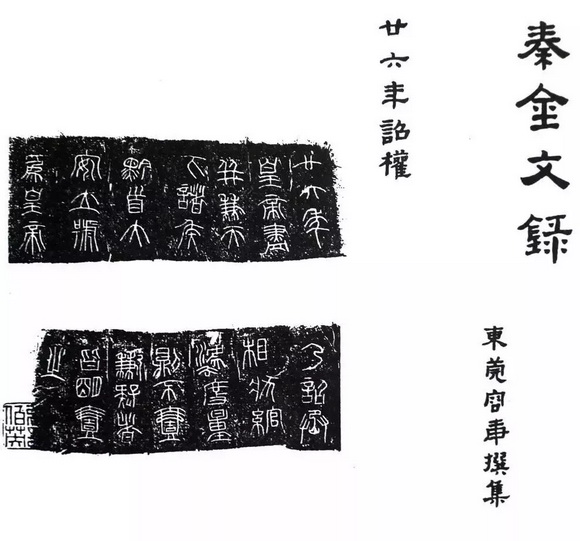 秦金文錄
東莞容庚撰集
廿六年詔權
廿六年
皇帝盡
并兼天
下諸侯
黔首大
安立號
為皇帝
乃詔丞
相狀綰
灋度量
則不壹
歉疑者
皆明壹
之